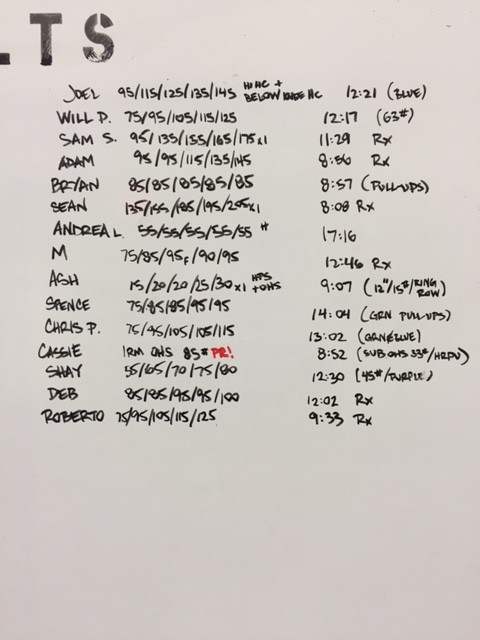 LTS
JOEL 95/115/125/135/145 HI HC + BELOW KNEE HC 12:21 (BLUE)
WILL P. 75/95/105/115/125 12:17 (63#)
SAM S. 95/135/155/165/175x1 11:29 Rx
ADAM 95/95/115/135/145 8:56 Rx
BRYAN 85/85/85/85/85 8:57 (PULL-UPS)
SEAN 135/155/185/195/205x1 8:08 Rx
ANDREA L. 55/55/55/55/55 H 17:16
M 75/85/95F/90/95 12:46 Rx
ASH 15/20/20/25/30x1 HPS +OHS 9:07 (12"/15#/RING ROW)
SPENCE 75/85/85/95/95 14:04 (GRN PULL-UPS)
CHRIS P. 75/95/105/105/115 13:02 (GRN&BLUE)
CASSIE 1RM OHS 85# PR! 8:52 (SUB OHS 33#/HRPU)
SHAY 55/65/70/75/80 12:30 (45#/PURPLE)
DEB 85/85/95/95/100 12:02 Rx
ROBERTO 75/95/105/115/125 9:33 Rx